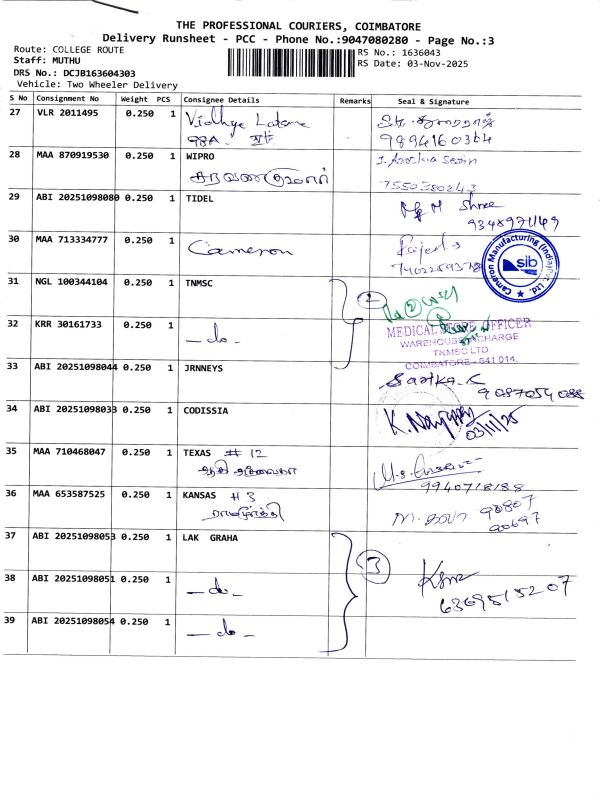 THE PROFESSIONAL COURIERS, COIMBATORE
Delivery Runsheet - PCC - Phone No.:9047080280 - Page No.:3
Route: COLLEGE ROUTE
RS No.: 1636043
Staff: MUTHU
RS Date: 03-Nov-2025
DRS No.: DCJB163604303
Vehicle: Two Wheeler Delivery
S No Consignment No Weight PCS Consignee Details Remarks Seal & Signature
27 VLR 2011495 0.250 1
98A
9894160364
28 MAA 870919530 0.250 1 WIPRO
சரவணகுமார்
7550380243
29 ABI 20251098080 0.250 1 TIDEL
Shree
30 MAA 713334777 0.250 1 Cameron
Cameron Manufacturing (India) Pvt. Ltd.
sib
31 NGL 100344104 0.250 1 TNMSC
2
32 KRR 30161733 0.250 1 —do—
MEDICAL STORE OFFICER
WAREHOUSE INCHARGE
TNMSC LTD
COIMBATORE - 641 014.
33 ABI 20251098044 0.250 1 JRNNEYS
9087054088
34 ABI 20251098033 0.250 1 CODISSIA
03/11/25
35 MAA 710468047 0.250 1 TEXAS # 12
9940718188
36 MAA 653587525 0.250 1 KANSAS # 3
ராமமூர்த்தி
90807
90697
37 ABI 20251098053 0.250 1 LAK GRAHA
3
38 ABI 20251098051 0.250 1 —do—
63695 15207
39 ABI 20251098054 0.250 1 —do—